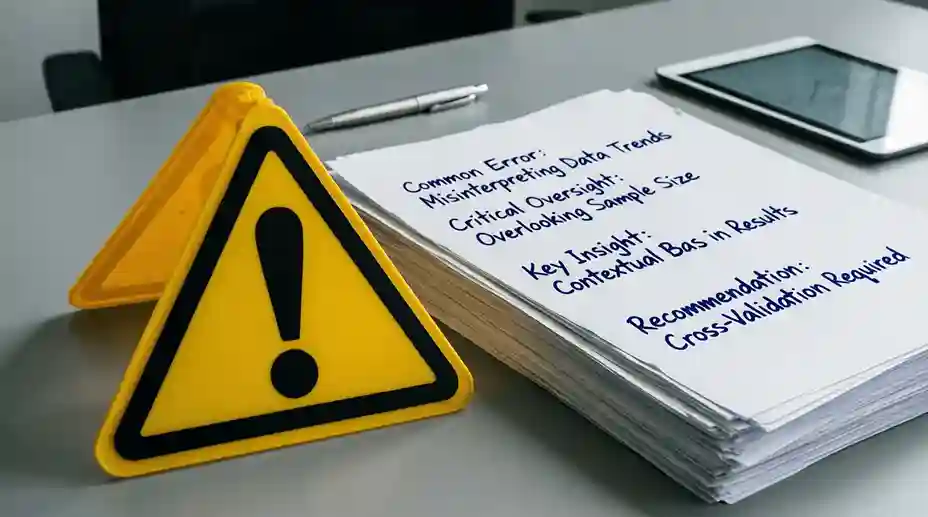 Common Error:
Misinterpreting Data Trends
Critical Oversight:
Overlooking Sample Size
Key Insight:
Contextual Bas in Results
Recommendation:
Cross-Validation Required